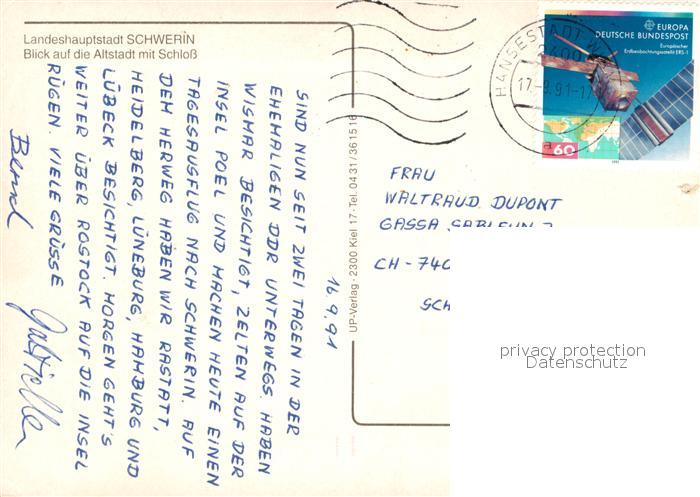 Landeshauptstadt SCHWERIN
Blick auf die Altstadt mit Schloß
16.9.91
SIND NUN SEIT ZWEI TAGEN IN DER
EHEMALIGEN DDR UNTERWEGS. HABEN
WISMAR BESICHTIGT, ZELTEN AUF DER
INSEL POEL UND MACHEN HEUTE EINEN
TAGESAUSFLUG NACH SCHWERIN. AUF
DEM HERWEG HABEN WIR RASTATT,
HEIDELBERG, LÜNEBURG, HAMBURG UND
LÜBECK BESICHTIGT. MORGEN GEHT'S
WEITER ÜBER ROSTOCK AUF DIE INSEL
RÜGEN. VIELE GRÜSSE
Bernd
UP-Verlag · 2300 Kiel 17 · Tel. 0431/361516
EUROPA
DEUTSCHE BUNDESPOST
Europäischer
Erdbeobachtungssatellit ERS-1
60
1991
HANSESTADT W
2400
17.-9.91-17
FRAU
WALTRAUD DUPONT
GASSA
CH - 740
SCH
privacy protection
Datenschutz